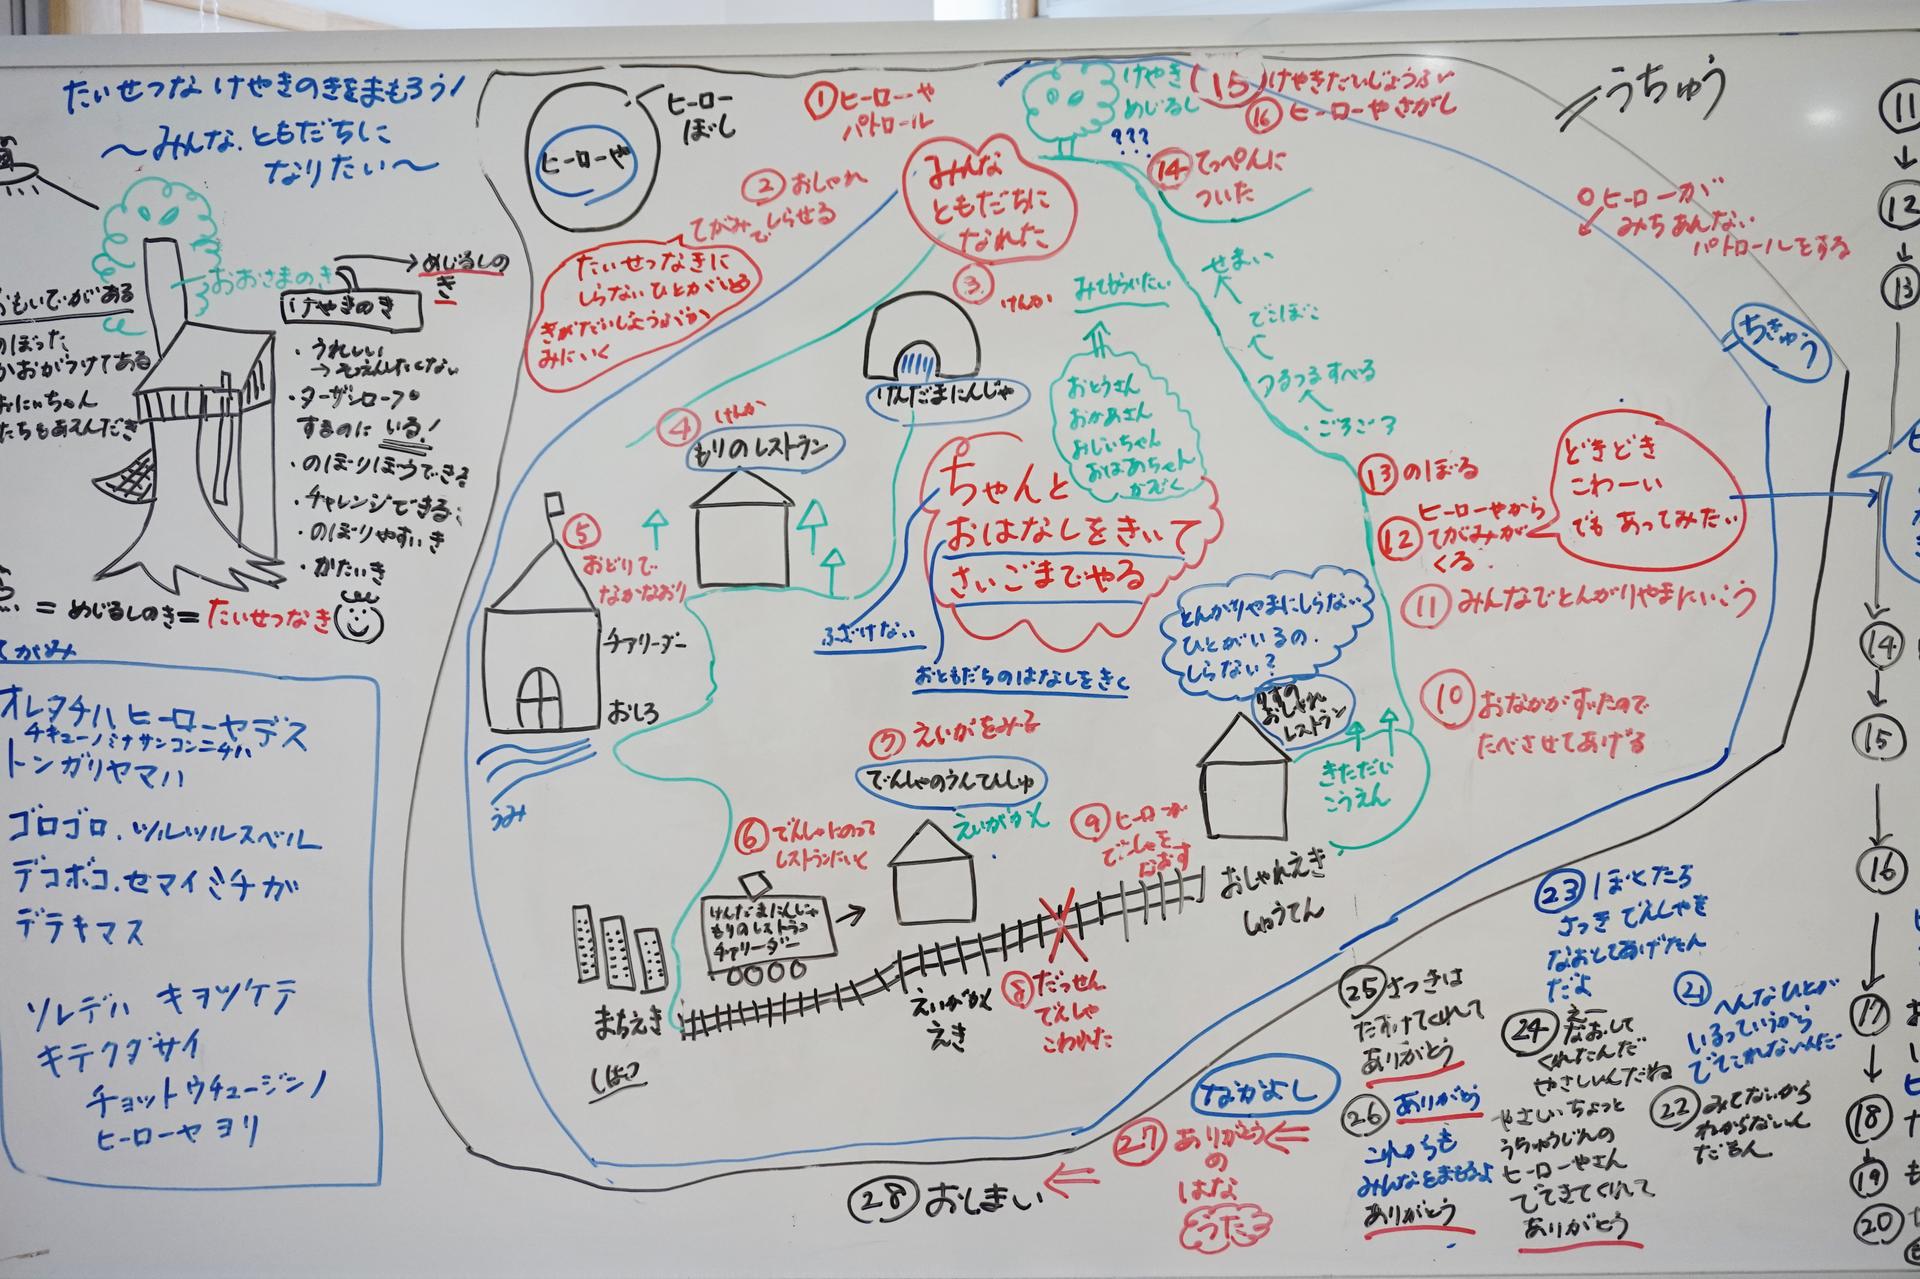 たいせつな けやきのきをまもろう!
〜みんな、ともだちに
なりたい〜
おおさまのき
めじるしの
き
けやきのき
おもいでがある
のぼった
かおがつけてある
おにいちゃん
たちもあそんだき
・うれしい
・ターザンロープ
するのに いる!
・のぼりぼうできる
・チャレンジできる
・のぼりやすいき
・かたいき
= めじるしのき = たいせつなき
てがみ
オレタチハ ヒーローヤデス
チキューノミナサンコンニチハ
トンガリヤマハ
ゴロゴロ.ツルツルスベル
デコボコ.セマイミチガ
デテキマス
ソレデハ キヲツケテ
キテクダサイ
チョットウチュージンノ
ヒーローヤヨリ
ヒーロー
ぼし
ヒーローや
① ヒーローや
パトロール
② おしゃれ
てがみでしらせる
たいせつなきに
しらないひとがいる
きがだいじょうぶか
みにいく
みんな
ともだちに
なれた
③ けんか
けんだまにんじゃ
④ けんか
もりのレストラン
⑤ おどりで
なかなおり
チアリーダー
おしろ
うみ
⑥ でんしゃにのって
レストランにいく
けんだまにんじゃ
もりのレストラン
チアリーダー
まちえき
しはつ
⑦ えいがをみる
でんしゃのうんてんしゅ
えいがかん
えいがかん
えき
⑧ だっせん
でんしゃ
こわれた
⑨ ヒーローが
でんしゃを
なおす
おしゃれえき
しゅうてん
りすの
おしゃれ
レストラン
きただい
こうえん
とんがりやまにしらない
ひとがいるの.
しらない?
ちゃんと
おはなしをきいて
さいごまでやる
ふざけない
おともだちのはなしをきく
みてもらいたい
おとうさん
おかあさん
おじいちゃん
おばあちゃん
かぞく
⑩ おなかがすいたので
たべさせてあげる
⑪ みんなでとんがりやまにいこう
⑫ ヒーローやから
てがみがくる
どきどき
こわーい
でも あってみたい
⑬ のぼる
・ごろごろ
つるつるすべる
でこぼこ
せまい
⑭ てっぺんに
ついた
けやき
めじるし
???
⑮ けやきだいじょうぶ
⑯ ヒーローやさがし
うちゅう
ヒーローが
みちあんない
パトロールをする
ちきゅう
⑪
⑫
⑬
⑭
⑮
⑯
⑰
⑱
⑲
⑳
㉑ へんなひとが
いるっていうから
でてこれないんだ
㉒ みてないから
わからないん
だもん
㉓ ぼくたち
さっき でんしゃを
なおしてあげたん
だよ
㉔ えー
なおして
くれたんだ
やさしいんだね
やさしいちょっと
うちゅうじんの
ヒーローやさん
でてきてくれて
ありがとう
㉕ さっきは
たすけてくれて
ありがとう
㉖ ありがとう
これからも
みんなをまもるよ
ありがとう
なかよし
㉗ ありがとう
の
はな
うた
㉘ おしまい